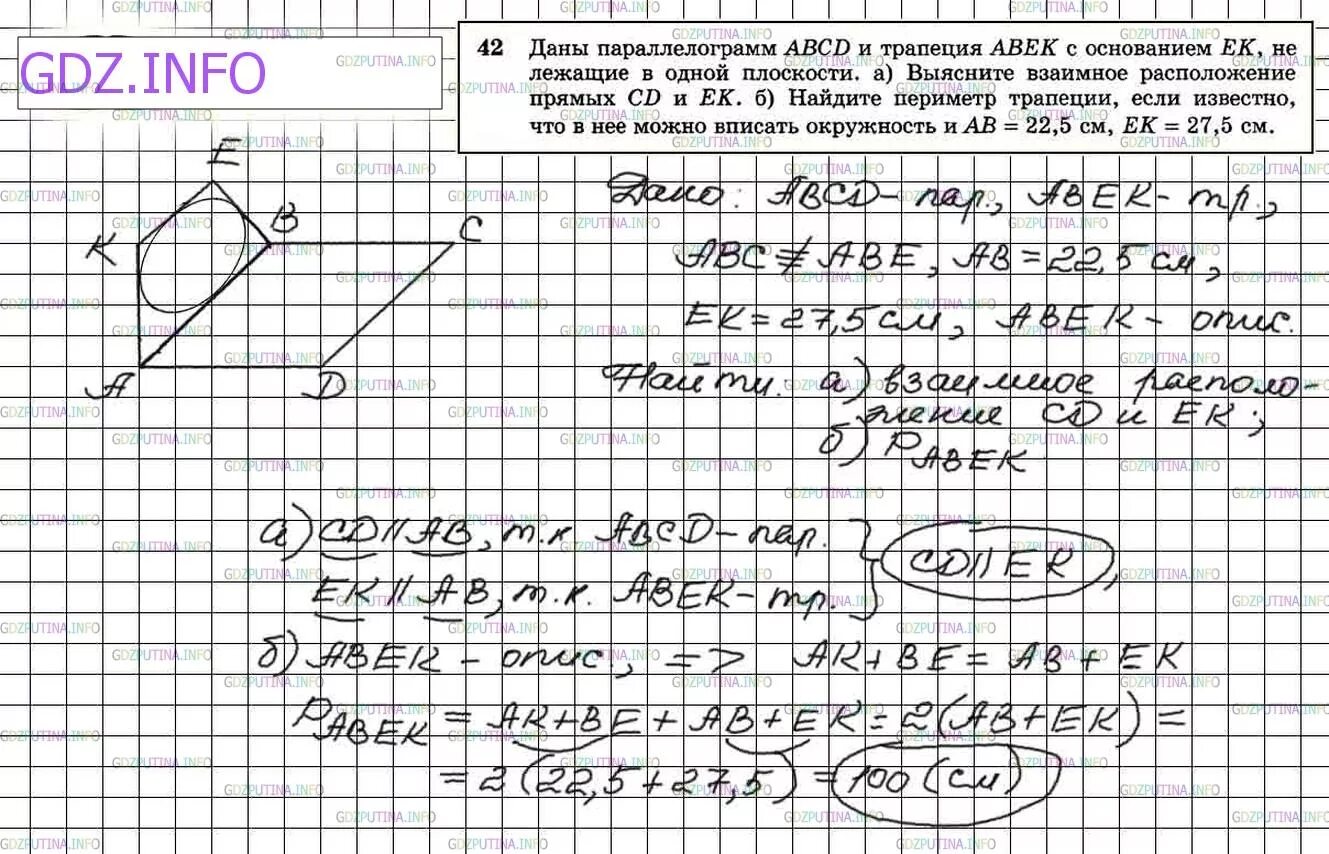 GDZ.INFO
42 Даны параллелограмм ABCD и трапеция ABEK с основанием EK, не
лежащие в одной плоскости. а) Выясните взаимное расположение
прямых CD и EK. б) Найдите периметр трапеции, если известно,
что в нее можно вписать окружность и AB = 22,5 см, EK = 27,5 см.
E
B
K
C
A
D
Дано: ABCD - пар., ABEK - тр.,
ABC ≢ ABE, AB = 22,5 см,
EK = 27,5 см, ABEK - опис.
Найти: а) взаимное располо-
жение CD и EK;
б) P ABEK
а) CD || AB, т.к. ABCD - пар. }
EK || AB, т.к. ABEK - тр. } CD || EK,
б) ABEK - опис., => AK + BE = AB + EK
P ABEK = AK + BE + AB + EK = 2(AB + EK) =
= 2(22,5 + 27,5) = 100 (см)
GDZPUTINA.INFO